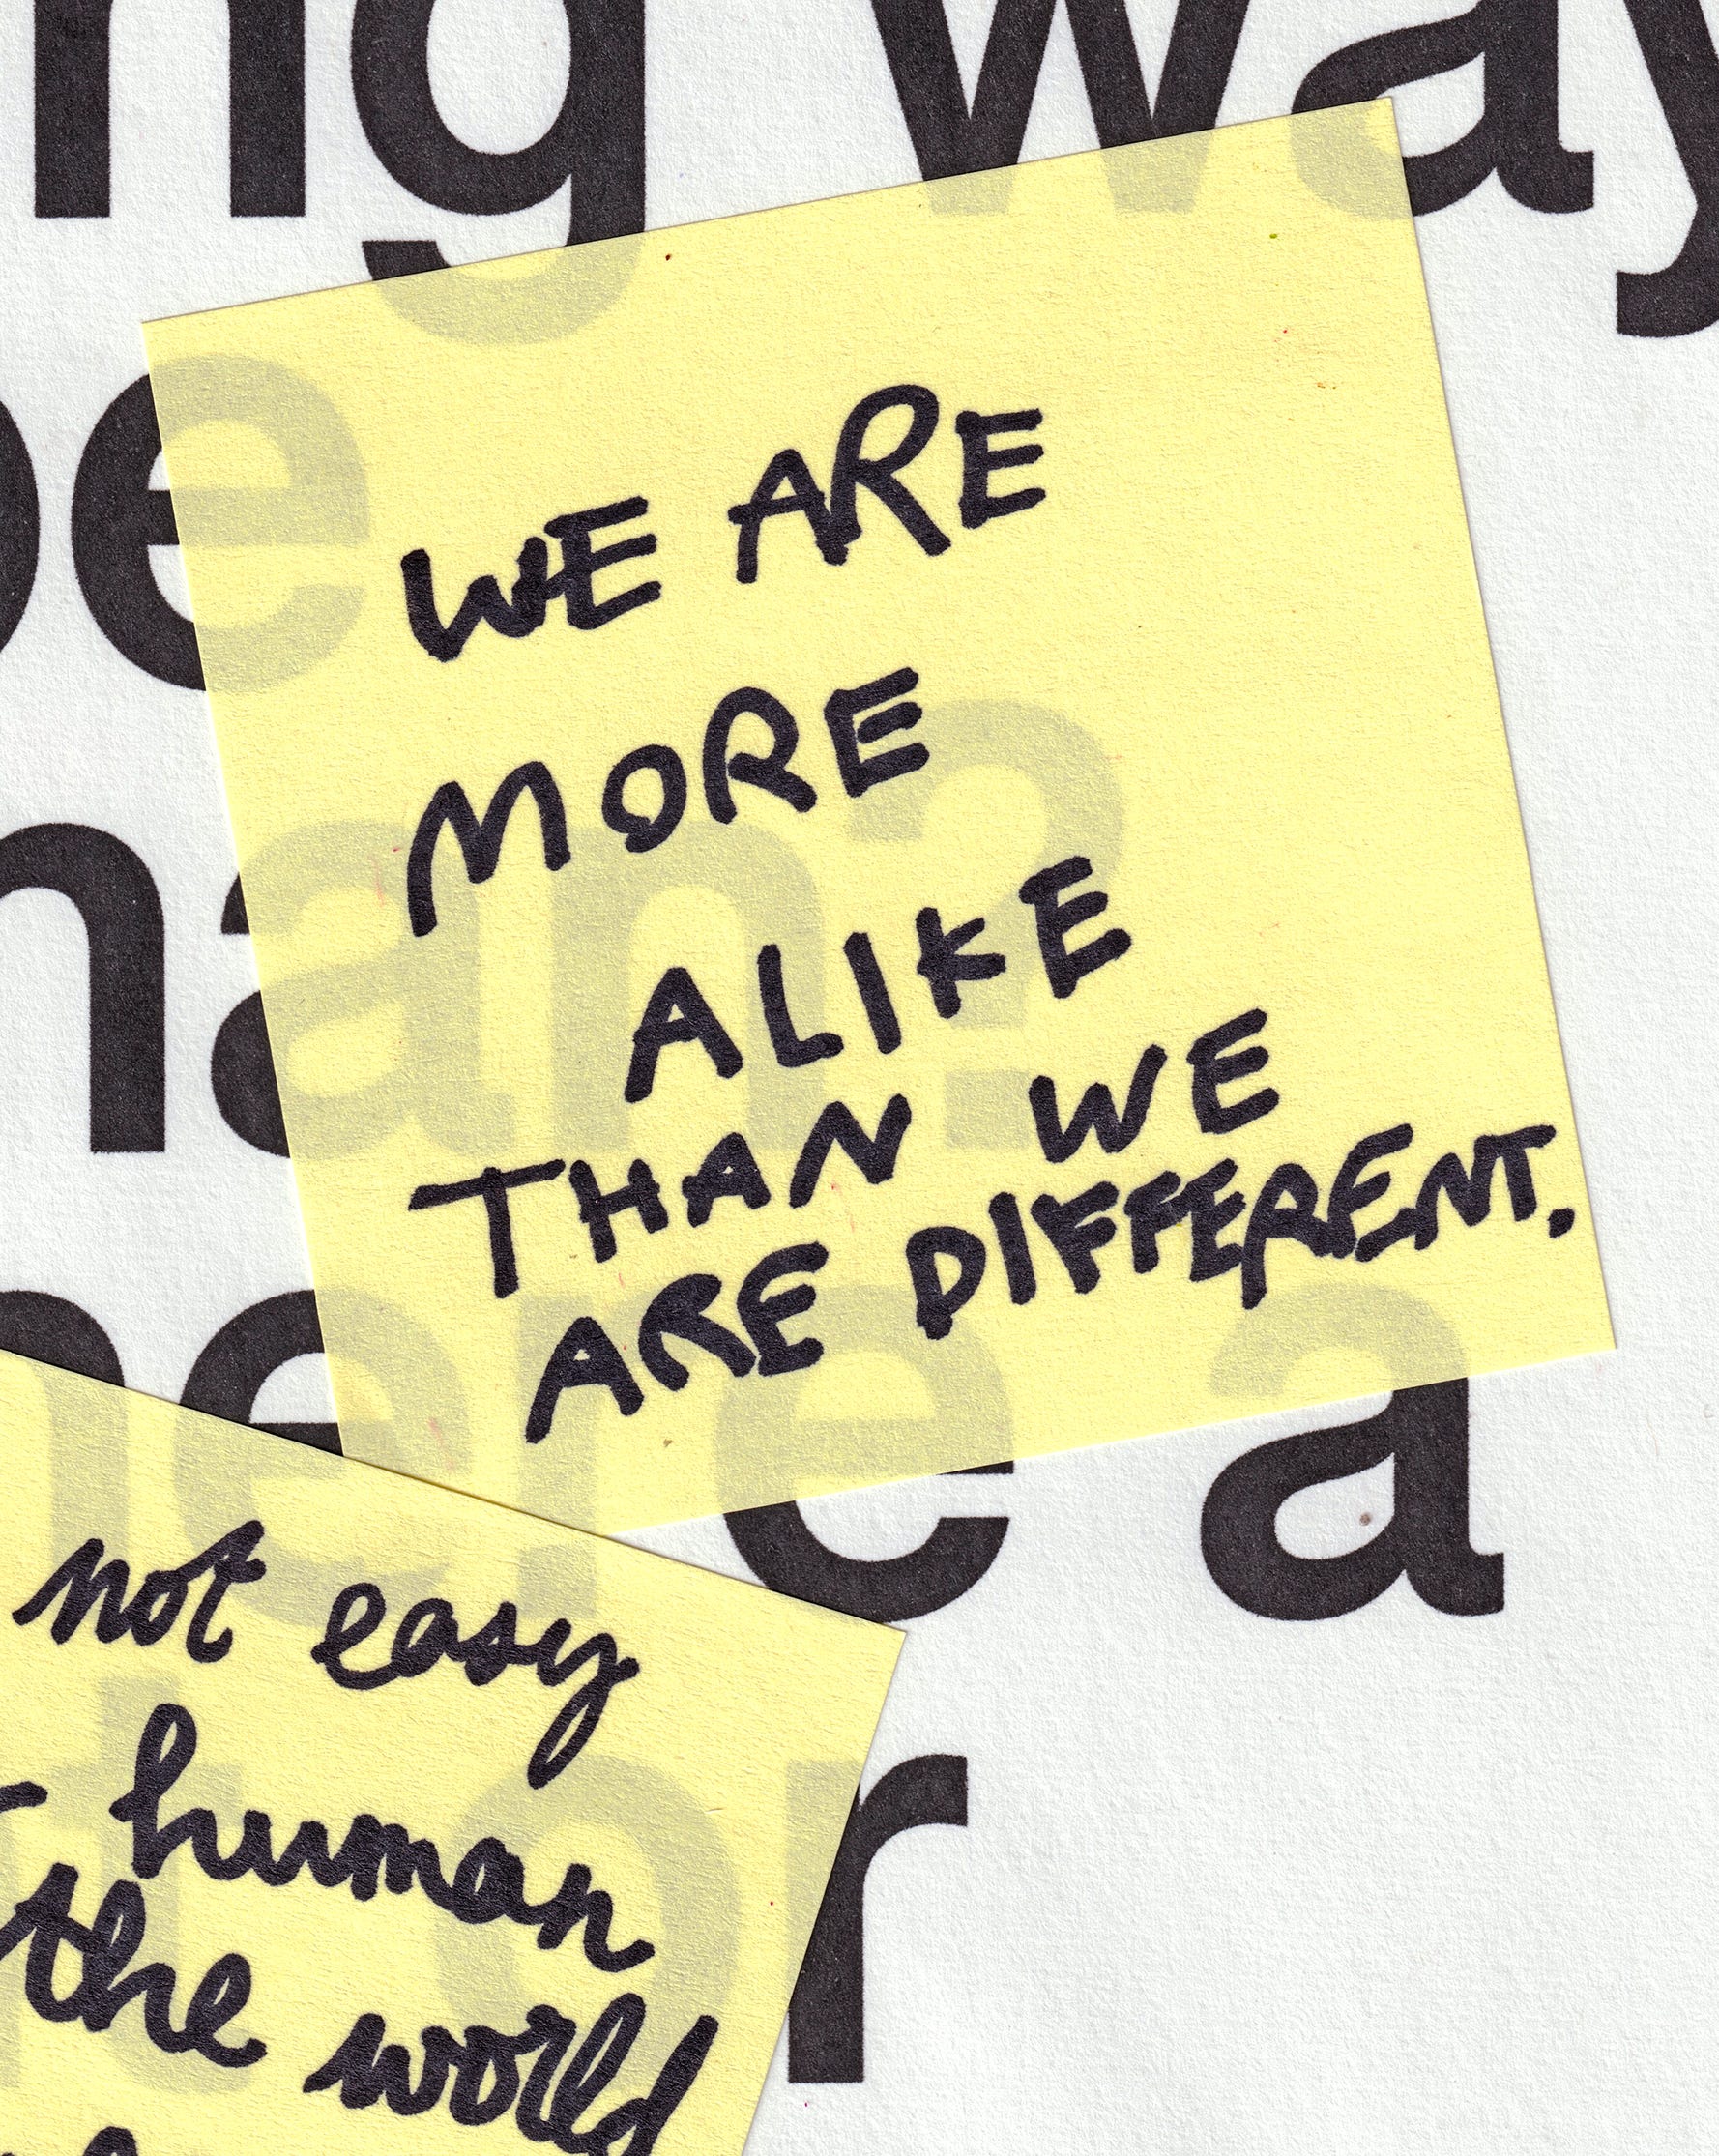 way
WE ARE
MORE
ALIKE
THAN WE
ARE DIFFERENT.
an?
here a
not easy
human
the world
or